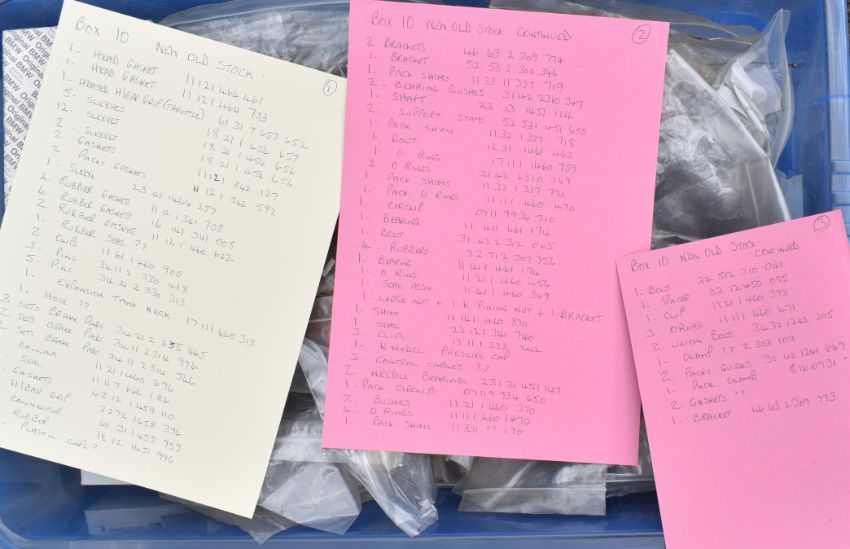 BMW Original BMW
BOX 10 NEW OLD STOCK.
①
1- HEAD GASKET 11 121 464 461
1- HEAD GASKET 11 121 466 733
1- HEATED H/BAR GRIP (THROTTLE) 61 31 7 657 652
5. SLEEVES 18 21 1 454 657
12. SLEEVES 18 21 1 454 656
2 SLEEVES 18 21 1 454 656
2. GASKETS 11 121 342 127
2 PACKS GASKETS 11 12 1 342 592
1. SEAL 23 41 1464 257
2- RUBBER GASKETS 11 12 1 341 708
6. RUBBER GASKETS 16 141 341 008
2- RUBBER GASKETS 11 12 1 460 622
1. RUBBER SEAL ??
2. CLIPS 11 61 1 460 900
3. PINS 34 11 2 330 418
5. PINS 34 21 2 330 313
1. EXPANSION TANK NECK 17 111 460 313
1- HOSE ??
3. SETS BRAKE PADS 34 21 2 335 465
2. SETS BRAKE PADS 34 11 2 314 996
SETS BRAKE PADS 34 11 2 314
COLLARS 11 21 1 460 696
SEAL 11 11 7 666 186
GASKETS 63 12 1 459 110
H/BAR GRIP 3272 1458 396
CONNECTOR 61 31 1 459 759
RUBBER 18 12 1451 996
PLASTIC CAPS ?
BOX 10 NEW OLD STOCK CONTINUED
②
2. BRACKETS 46 63 2 309 774
1- BRACKET 52 53 2 300 346
1. PACK SHIMS 11 33 11 337 719
2- BEARING BUSHES 31 42 2310 347
1- SHAFT 23 1451 124
2. SUPPORT STAYS 52 531 451 650
1. PACK SHIMS 11 32 1 337 718
1. BOLT 12 31 1461 443
1. O RING 17 111 1460 759
2. O RINGS 31 42 2310 349
1. PACK SHIMS 11 33 1 337 721
1. PACK O RINGS 11 11 1 460 470
1- CIRCLIP 07 11 9934 710
1- BEARING 11 141 461 174
1. BOLT 31 42 2 312 065
4. RUBBERS 32 712 307 356
1- BEARING 11 141 461 174
1. O RING 11 21 1 460 456
1. SEAL ASSM 11 41 1 460 349
1. LARGE NUT + 1. K PINION NUT + 1. BRACKET.
1- SHIM 11 141 460 890
1. SEAL 23 12 1 341 740
3. CLIPS 13 11 1 338 242
1. K MODEL PRESSURE CAP
2. CONTROL CABLES ??
2 NEEDLE BEARINGS 23 1 31 451 147
1- PACK CIRCLIPS 07 11 9 934 650
2. BUSHES 11 21 1 460 370
4. O RINGS 11 11 1 460 1470
1. PACK SHIMS 11 331 ?? 170
③
BOX 10 NEW OLD STOCK CONTINUED
1. BOLT 34 512 310 041
1. SPACER 33 12 450 095
1. CLIP 11 21 1 460 373
3. O RINGS 11 11 1 460 471
2. UNION BOLTS 34 32 1242 205
1. CLAMP ?? 2 303 103
2. PACKS GUIDES 31 42 1241 649
1. PACK CLAMP 8160931 .
2. GASKETS ??
1. BRACKET 46 63 2 309 773